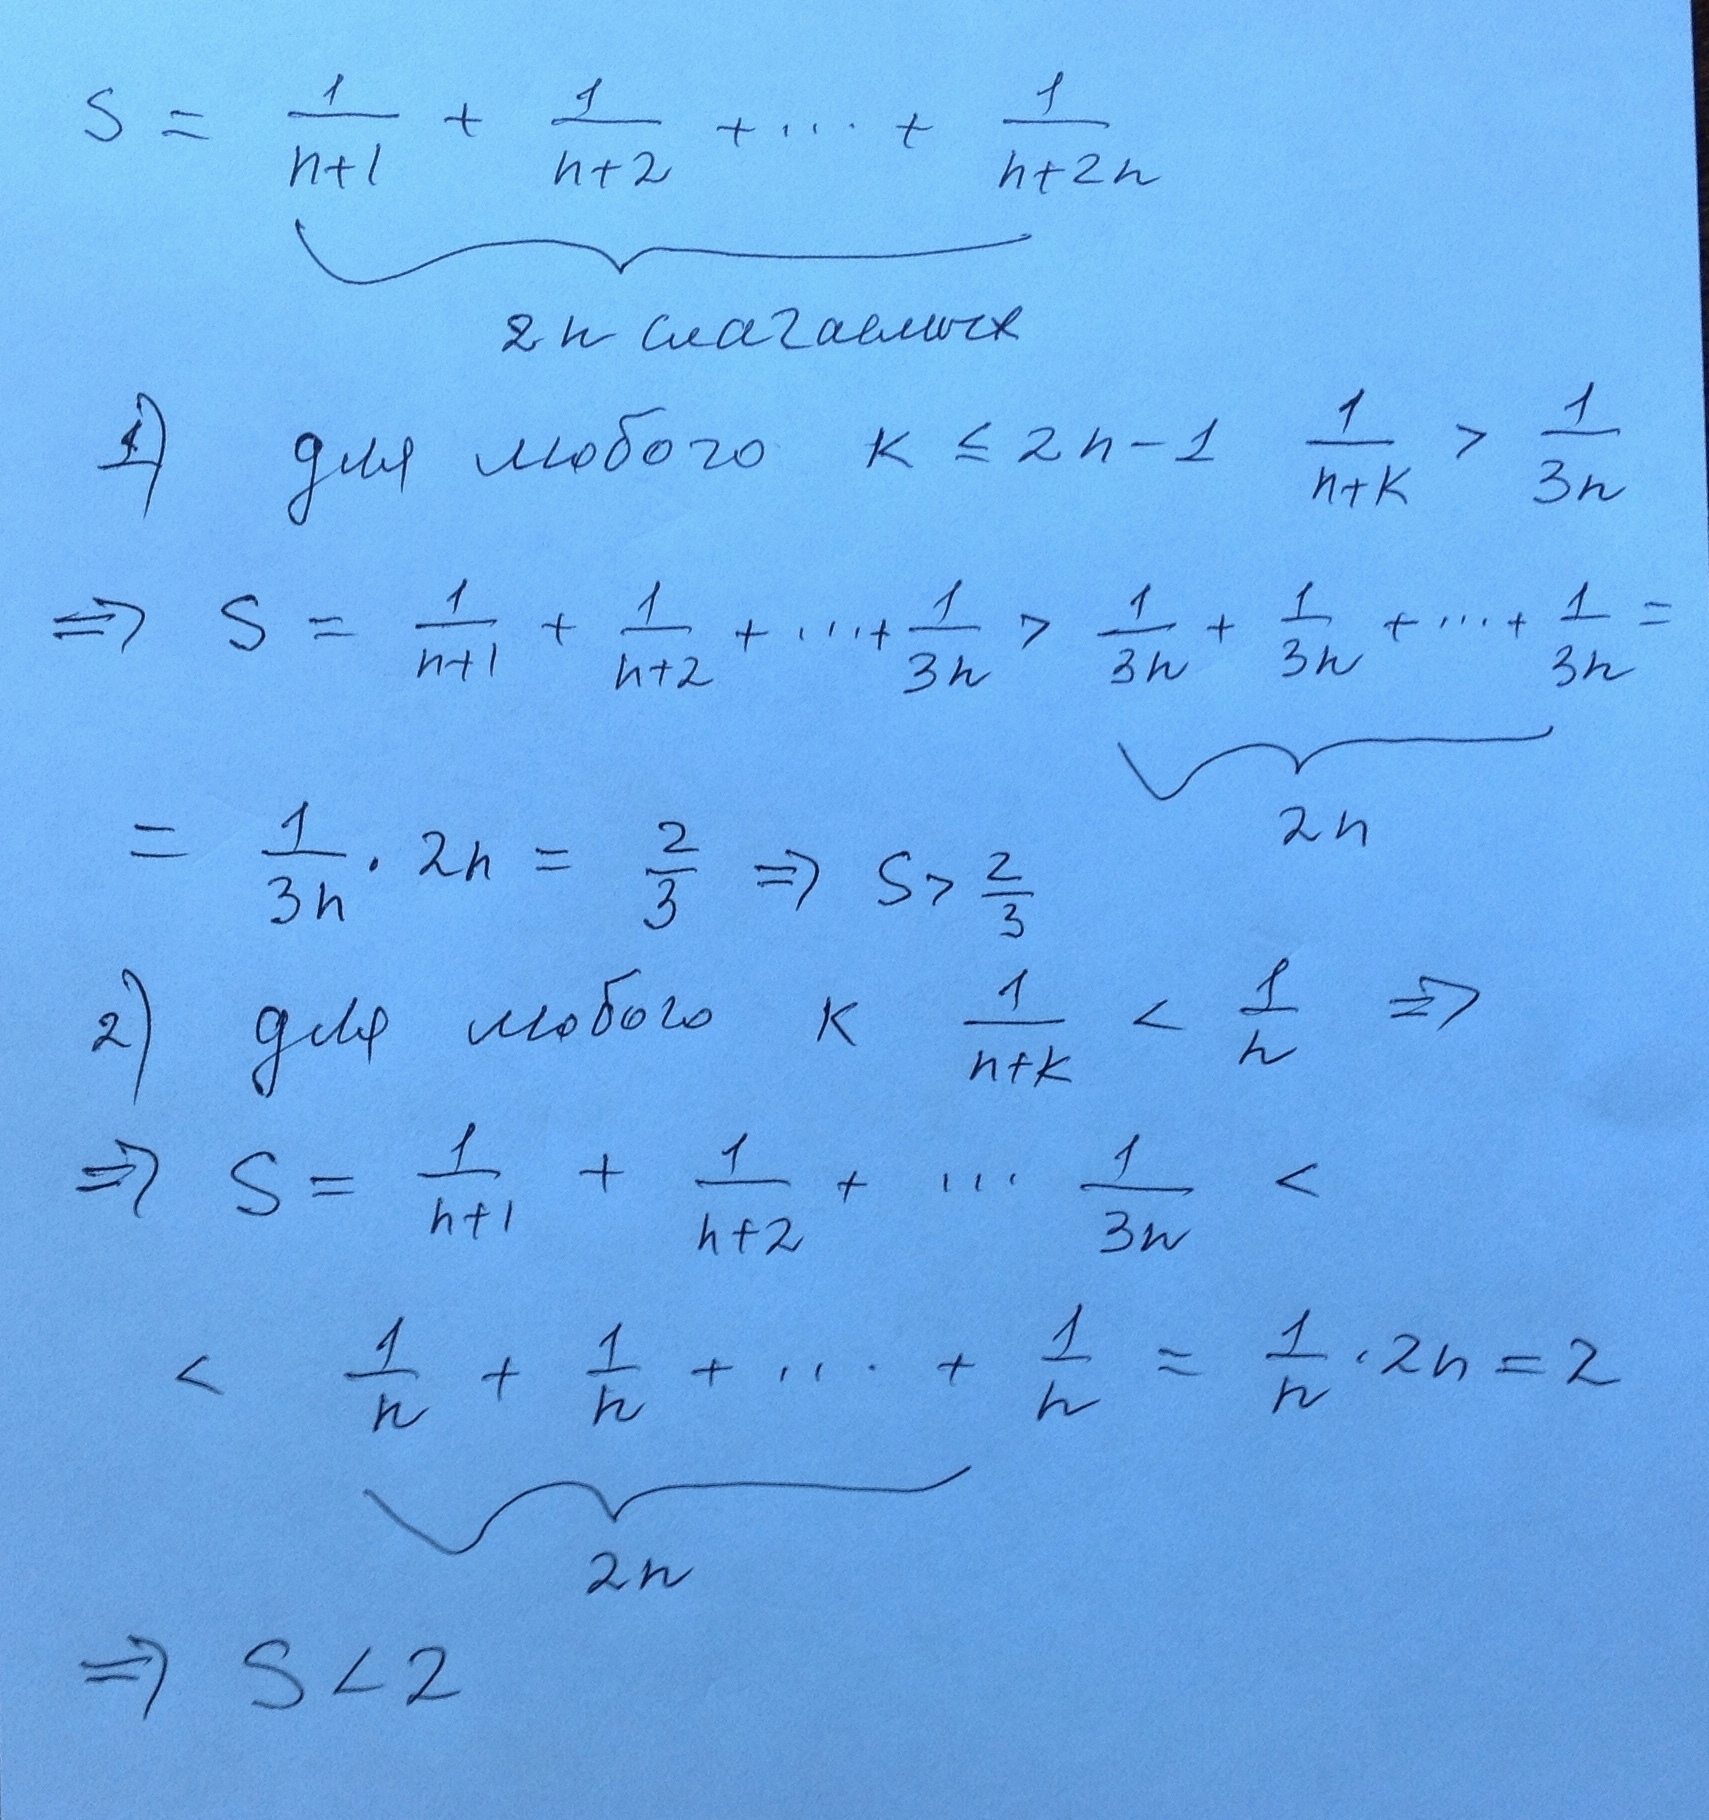 S = 1/(n+1) + 1/(n+2) + ... + 1/(n+2n)
2n слагаемых
1) для любого k ≤ 2n-1 1/(n+k) > 1/3n
⇒ S = 1/(n+1) + 1/(n+2) + ... + 1/3n > 1/3n + 1/3n + ... + 1/3n =
2n
= 1/3n · 2n = 2/3 ⇒ S > 2/3
2) для любого k 1/(n+k) < 1/n ⇒
⇒ S = 1/(n+1) + 1/(n+2) + ... 1/3n <
< 1/n + 1/n + ... + 1/n = 1/n · 2n = 2
2n
⇒ S < 2